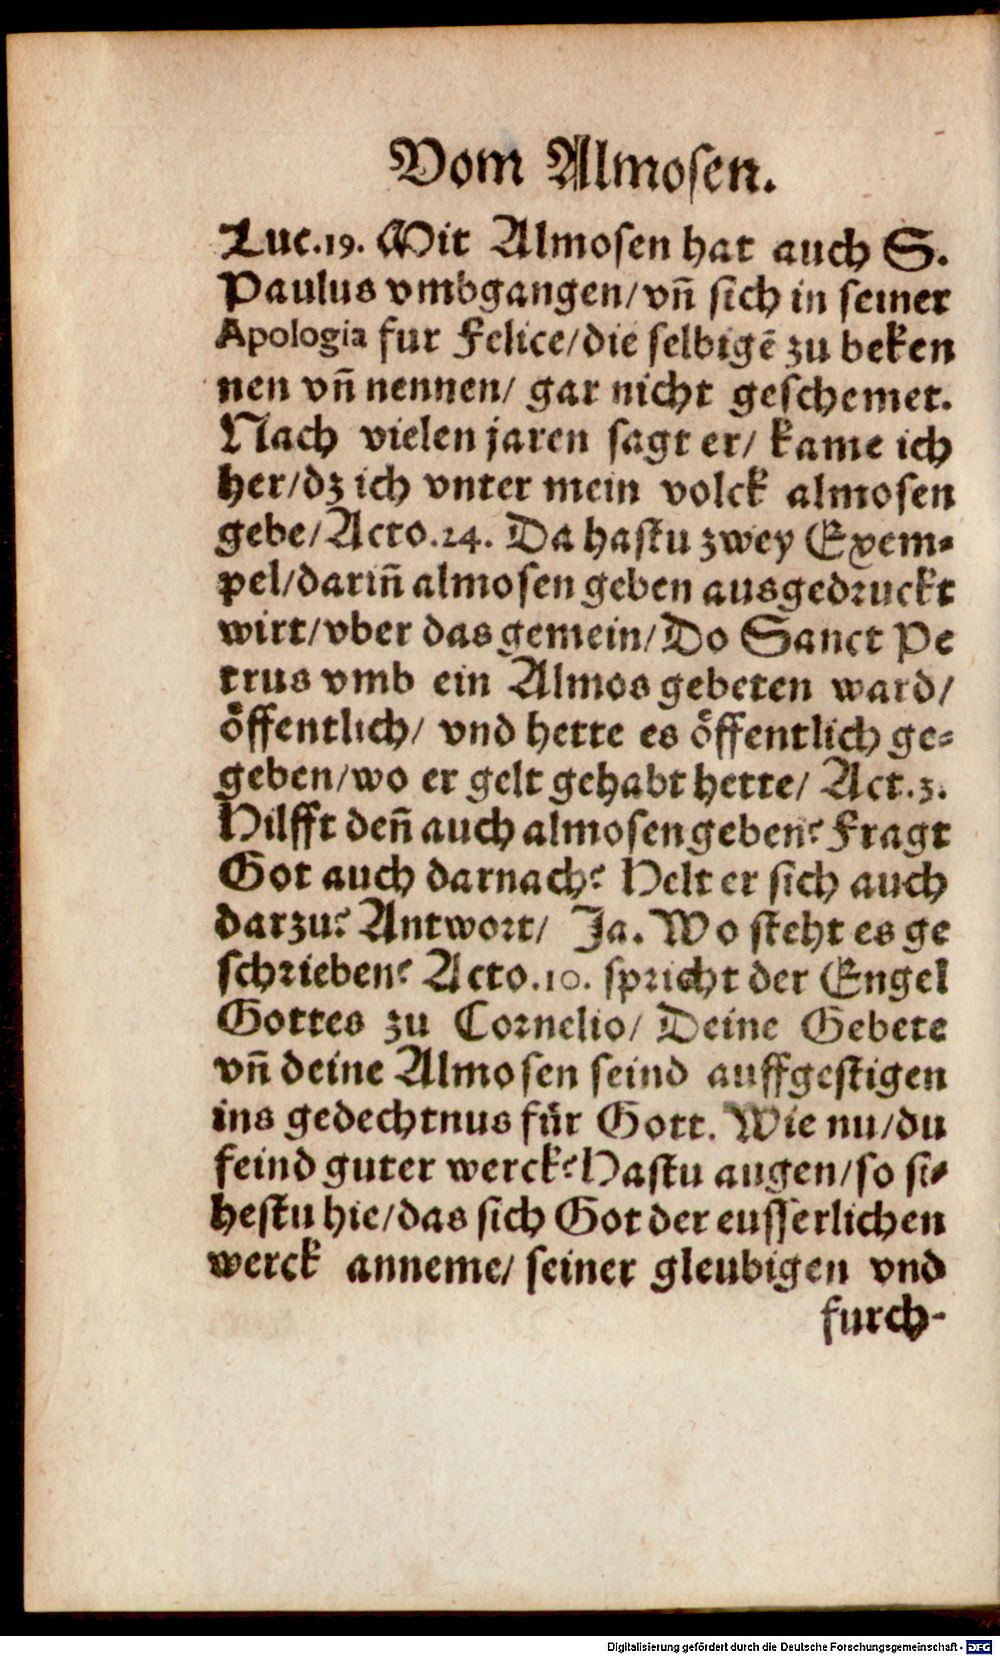 Vom Almosen.
Luc.19. Mit Almosen hat auch S.
Paulus vmbgangen/vñ sich in seiner
Apologia fur Felice/die selbigẽ zu beken
nen vñ nennen/ gar nicht geschemet.
Nach vielen jaren sagt er/ kame ich
her/dz ich vnter mein volck almosen
gebe/Acto.24. Da hastu zwey Exem-
pel/dariñ almosen geben ausgedruckt
wirt/vber das gemein/Do Sanct Pe
trus vmb ein Almos gebeten ward/
öffentlich/ vnd hette es öffentlich ge-
geben/wo er gelt gehabt hette/ Act.3.
Hilfft deñ auch almosen geben? Fragt
Got auch darnach? Helt er sich auch
darzu? Antwort/ Ja. Wo steht es ge
schrieben? Acto.10. spricht der Engel
Gottes zu Cornelio/ Deine Gebete
vñ deine Almosen seind auffgestigen
ins gedechtnus für Gott. Wie nu/du
feind guter werck? Hastu augen/so si-
hestu hie/das sich Got der eusserlichen
werck anneme/ seiner gleubigen vnd
furch-
Digitalisierung gefördert durch die Deutsche Forschungsgemeinschaft - DFG